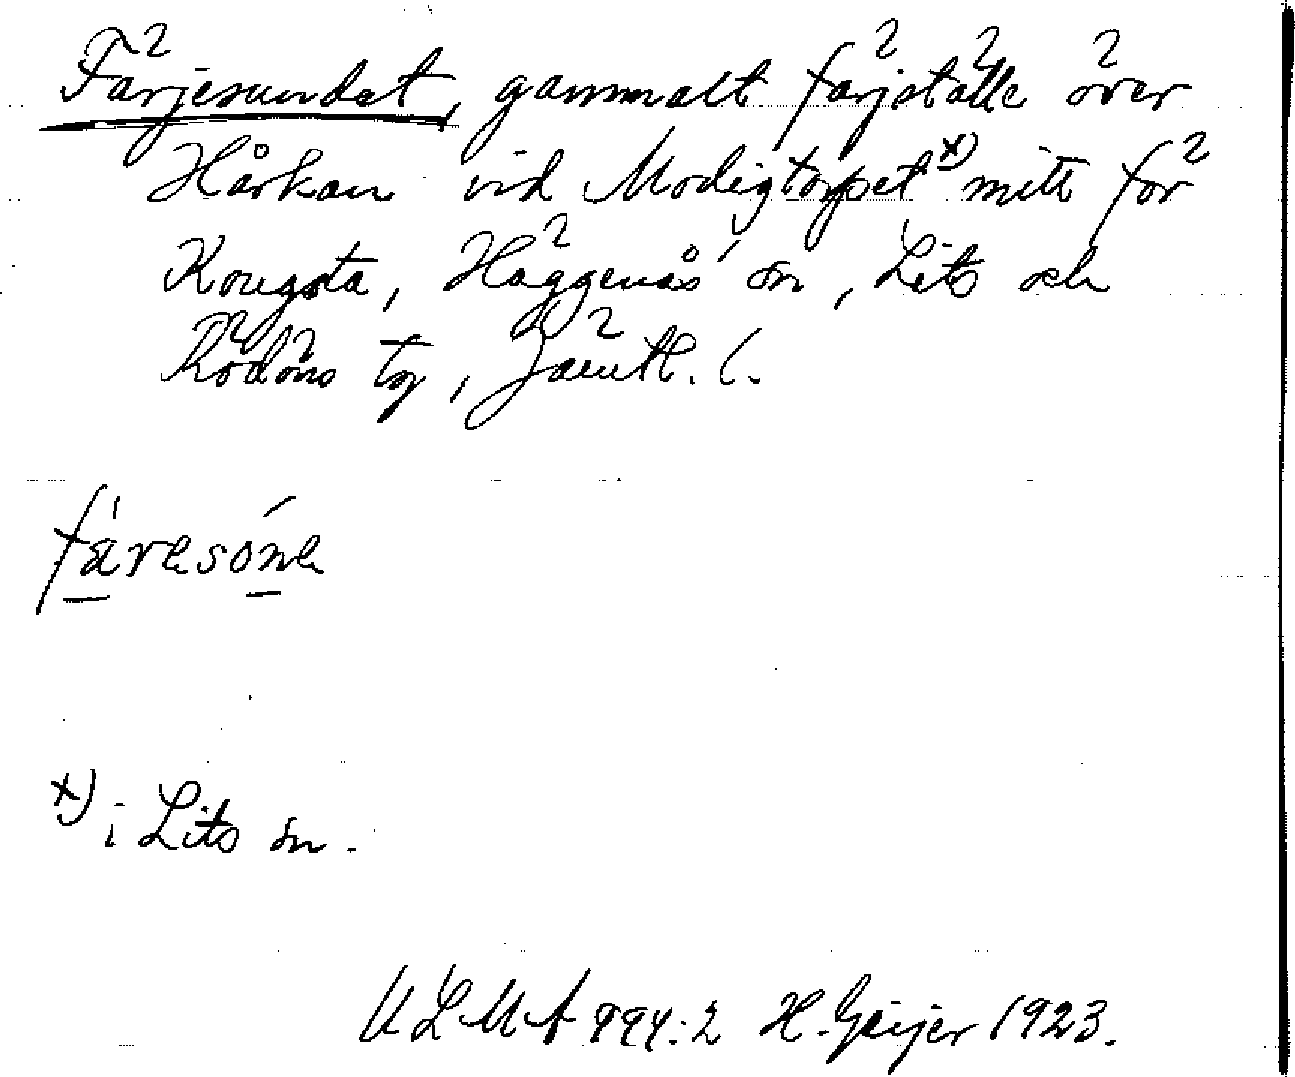 Färjesundet, gammalt färjställe över
Hårkan vid Modigtorpet x) mitt för
Kougsta, Häggenås sn, Lits och
Rödöns tg, Jämtl. l.
færesóne
x) i Lits sn.
ULMA 994:2 H. Geijer 1923.